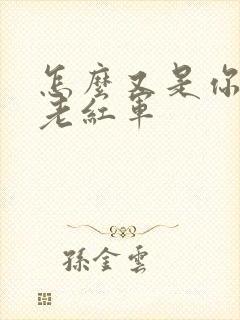 怎麼又是你
老紅軍
孫金雲